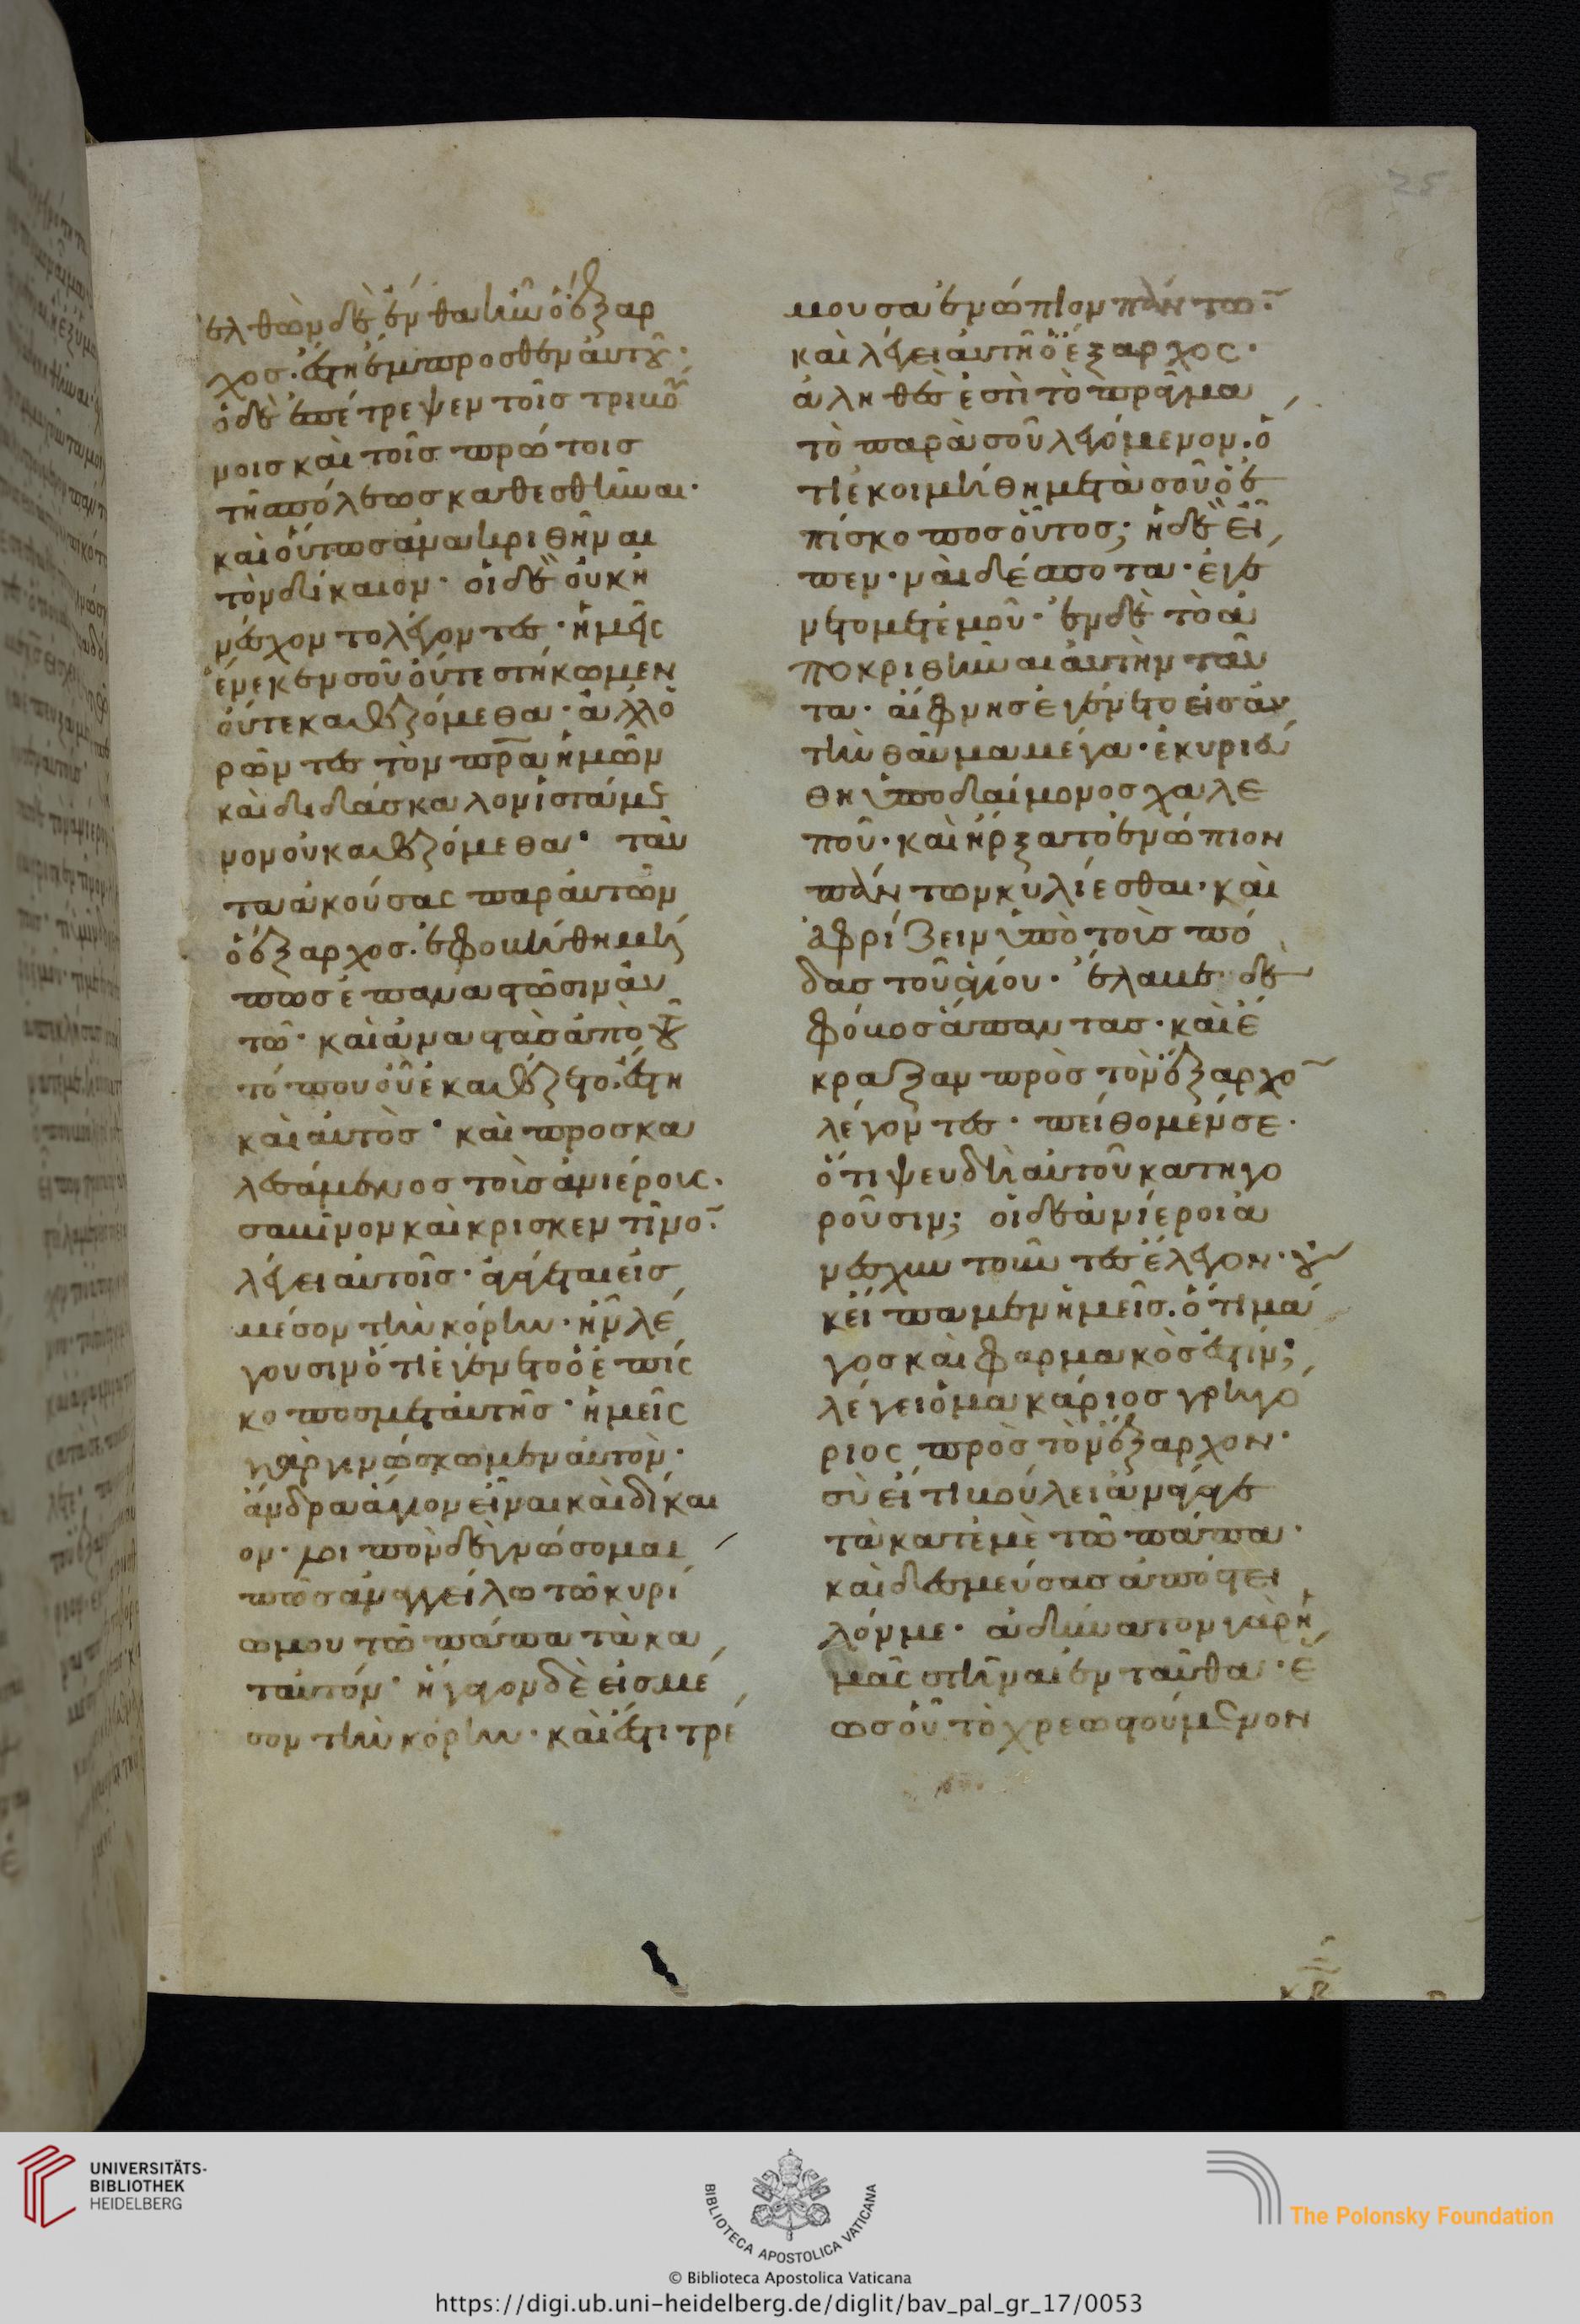 25
ἐλθὼν δὲ ἐνθα ἦν ὁ ἔξαρ
χος. ἔστη ἔμπροσθεν αὐτοῦ·
ὁ δὲ ἐπέτρεψεν τοῖς τριβού
νοις καὶ τοῖς πρώτοις
τῆς πόλεως καθεσθῆναι·
καὶ οὕτως ἀνακριθῆναι
τὸν δίκαιον· οἱ δὲ οὐκ ἠ
νέσχοντο λέγοντες· ἡμεῖς
ἕνεκεν σοῦ οὔτε στήκωμεν
οὔτε καθεζόμεθα· ἀλλ' ὁ
ρῶντες τὸν πρα ἡμῶν
καὶ διδάσκαλον ἱστάμε
νον οὐ καθεζόμεθα· ταῦ
τα ἀκούσας παρ' αὐτῶν
ὁ ἔξαρχος. ἐφοβήθη μή
πως ἐπαναστῶσιν αὐ
τῶ· καὶ ἀναστὰς ἀπὸ τοῦ
τόπου οὗ ἐκαθέζετο. ἔστη
καὶ αὐτὸς· καὶ προσκα
λεσάμενος τοὺς ἀνιέρους.
σαβῖνον καὶ κρισκεντῖνον.
λέγει αὐτοῖς· ἀγάγεται εἰς
μέσον τὴν κόρην· ἣν λέ
γουσιν ὅτι ἐγένετο ὁ ἐπίσ
κοπος μετ' αὐτῆς· ἡμεῖς
γὰρ γινώσκωμεν αὐτὸν·
ἄνδρα ἅγιον εἶναι καὶ δίκαι
ον· λοιπὸν δὲ γνώσομαι
πῶς ἀναγγείλω τῶ κυρί
ω μου τῶ πάπα τὰ κα
τ' αὐτόν· ἤγαγον δὲ εἰς μέ
σον τὴν κόρην· καὶ ἔστι τρέ
μουσα ἐνώπιον πάντων.
καὶ λέγει αὐτῆ ὁ ἔξαρχος·
ἀληθές ἐστι τὸ πρᾶγμα
τὸ παρὰ σοῦ λεγόμενον. ὅ
τι ἐκοιμήθη μετὰ σοῦ ὁ ἐ
πίσκοπος οὗτος; ἡ δὲ εἶ
πεν· ναὶ δέσποτα· ἐγέ
νετο μετ' ἐμοῦ· ἐν δὲ τὸ ἀ
ποκριθῆναι αὐτὴν ταῦ
τα· αἴφνης ἐγένετο εἰς αὐ
τὴν θαῦμα μέγα· ἐκυριεύ
θη ὑπὸ δαίμονος χαλε
ποῦ· καὶ ἤρξατο ἐνώπιον
πάντων κυλίεσθαι· καὶ
ἀφρίζειν ὑπὸ τοὺς πό
δας τοῦ ἁγίου· ἔλαβε δὲ
φόβος ἅπαντας· καὶ ἔ
κραξαν πρὸς τὸν ἔξαρχον
λέγοντες· πείθομέν σε·
ὅτι ψευδῆ αὐτοῦ κατηγο
ροῦσιν; οἱ δὲ ἀνίεροι ἀ
νέσχυντοι ὄντες ἔλεγον· οὐ
κ εἴπαμεν ἡμεῖς. ὅτι μά
γος καὶ φαρμακός ἐστίν;
λέγει ὁ μακάριος γρηγό
ριος πρὸς τὸν ἔξαρχον·
σὺ εἴ τι βούλει ἀνάγαγε
τὰ κατ' ἐμὲ τῶ πάπα·
καὶ δεσμεύσας ἀπόστει
λόν με· ἀδύνατον γὰρ ἡ
μᾶς στῆναι ἐνταῦθα· ἕ
ως οὗ τὸ χρεωστούμενον
UNIVERSITÄTS-
BIBLIOTHEK
HEIDELBERG
BIBLIOTECA APOSTOLICA VATICANA
The Polonsky Foundation
© Biblioteca Apostolica Vaticana
https://digi.ub.uni-heidelberg.de/diglit/bav_pal_gr_17/0053